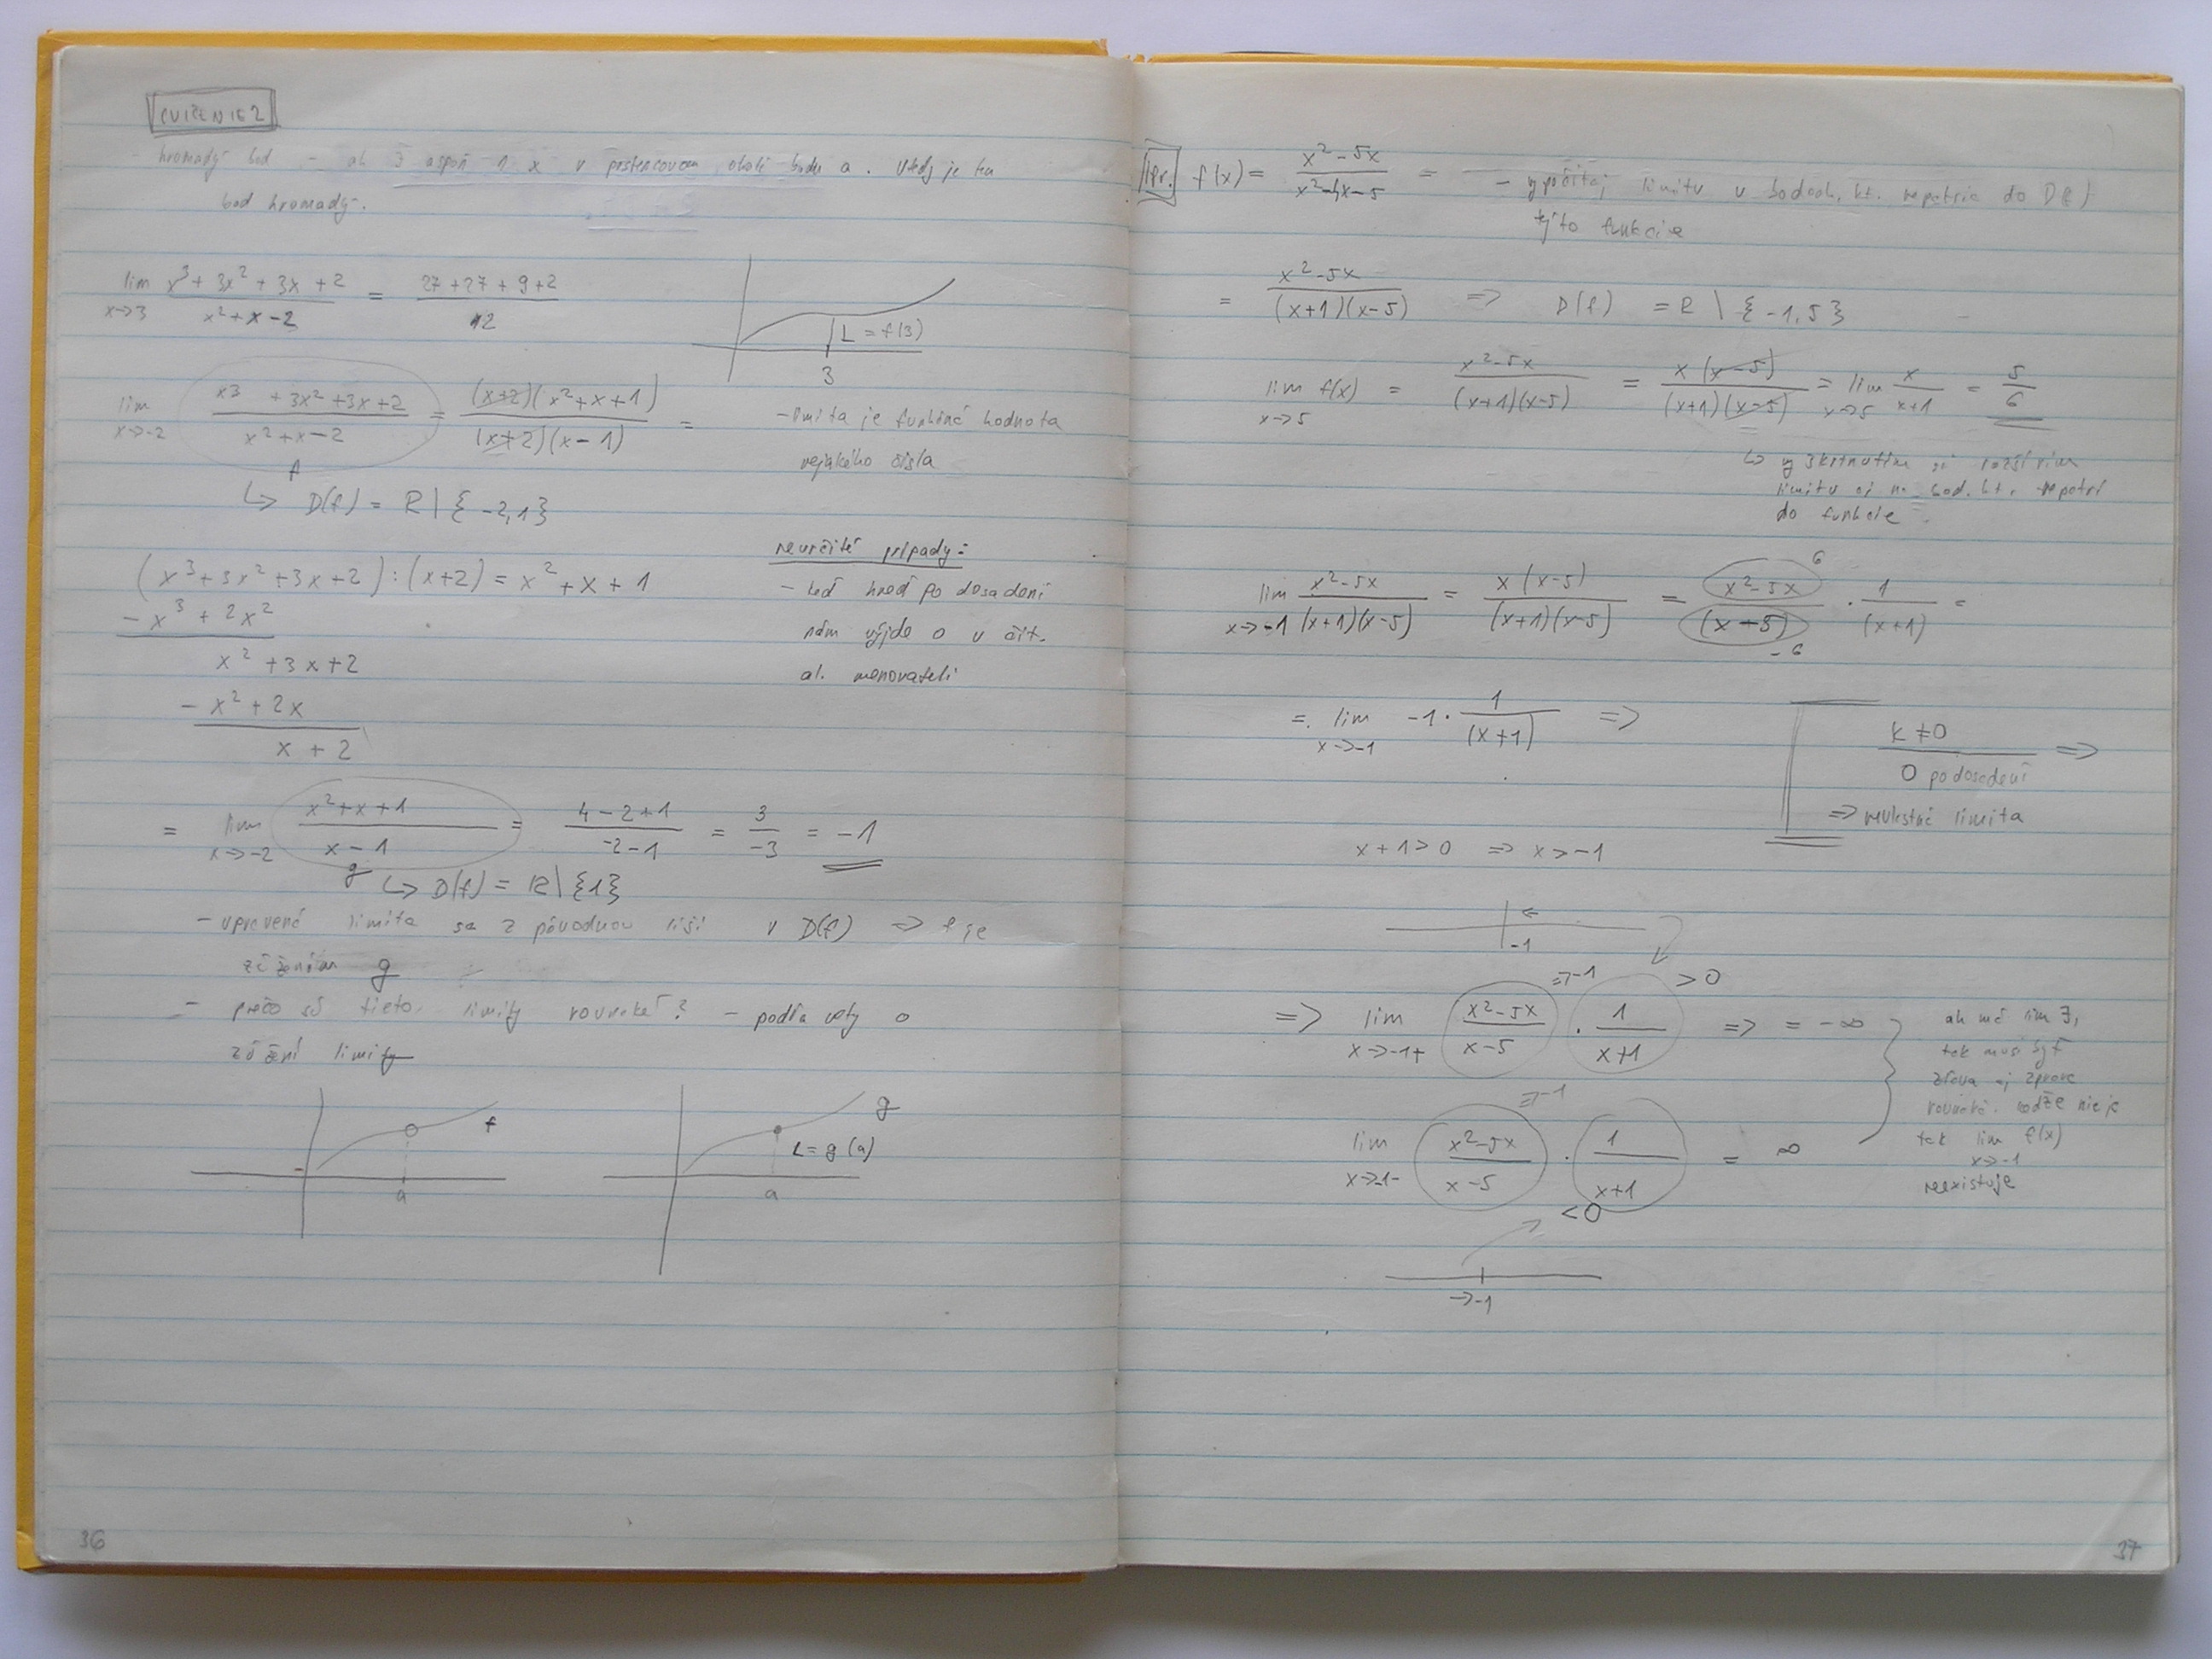 CVIČENIE 2
- hromadý bod - ak ∃ aspoň 1 x v prstencovom okolí bodu a. Vtedy je ten
bod hromadý.
lim x→3 (x³ + 3x² + 3x + 2)/(x² + x - 2) = (27 + 27 + 9 + 2)/12
L = f(3)
3
lim x→-2 (x³ + 3x² + 3x + 2)/(x² + x - 2) = (x+2)(x² + x + 1)/(x+2)(x - 1) =
f
- limita je funkčná hodnota
nejakého čísla
↳ D(f) = R \ {-2, 1}
(x³ + 3x² + 3x + 2) : (x+2) = x² + x + 1
- x³ + 2x²
x² + 3x + 2
- x² + 2x
x + 2
neurčité prípady:
- keď hneď po dosadení
nám výjde 0 v čit.
al. menovateli
= lim x→-2 (x² + x + 1)/(x - 1) = (4 - 2 + 1)/(-2 - 1) = 3/-3 = -1
g ↳ D(f) = R \ {1}
- upravená limita sa z pôvodnou líši v D(f) ⇒ f je
zúžením g
- prečo sú tieto limity rovnaké? - podľa vety o
zúžení limity
f
a
g
L = g(a)
a
36
Pr. f(x) = (x² - 5x)/(x² - 4x - 5) = - vypočítaj limitu v bodoch, kt. nepatria do D(f)
tejto funkcie
= (x² - 5x)/(x+1)(x-5) ⇒ D(f) = R \ {-1, 5}
lim x→5 f(x) = (x² - 5x)/(x+1)(x-5) = x(x-5)/(x+1)(x-5) = lim x→5 x/(x+1) = 5/6
↳ vyškrtnutím si rozšírim
limitu aj na bod, kt. nepatrí
do funkcie
lim x→-1 (x² - 5x)/(x+1)(x-5) = x(x-5)/(x+1)(x-5) = (x² - 5x)/(x-5) · 1/(x+1) =
6
-6
= lim x→-1 -1 · 1/(x+1) ⇒
k ≠ 0
0 po dosadení ⇒
⇒ nevlastná limita
x + 1 > 0 ⇒ x > -1
←
-1
⇒ lim x→-1+ (x² - 5x)/(x - 5) · 1/(x+1) ⇒ = -∞
⇒ -1
> 0
lim x→-1- (x² - 5x)/(x - 5) · 1/(x+1) = ∞
⇒ -1
< 0
→ -1
ak má lim ∃,
tak musí byť
zľava aj zprava
rovnaká. keďže nie je
tak lim f(x)
x→-1
neexistuje
37